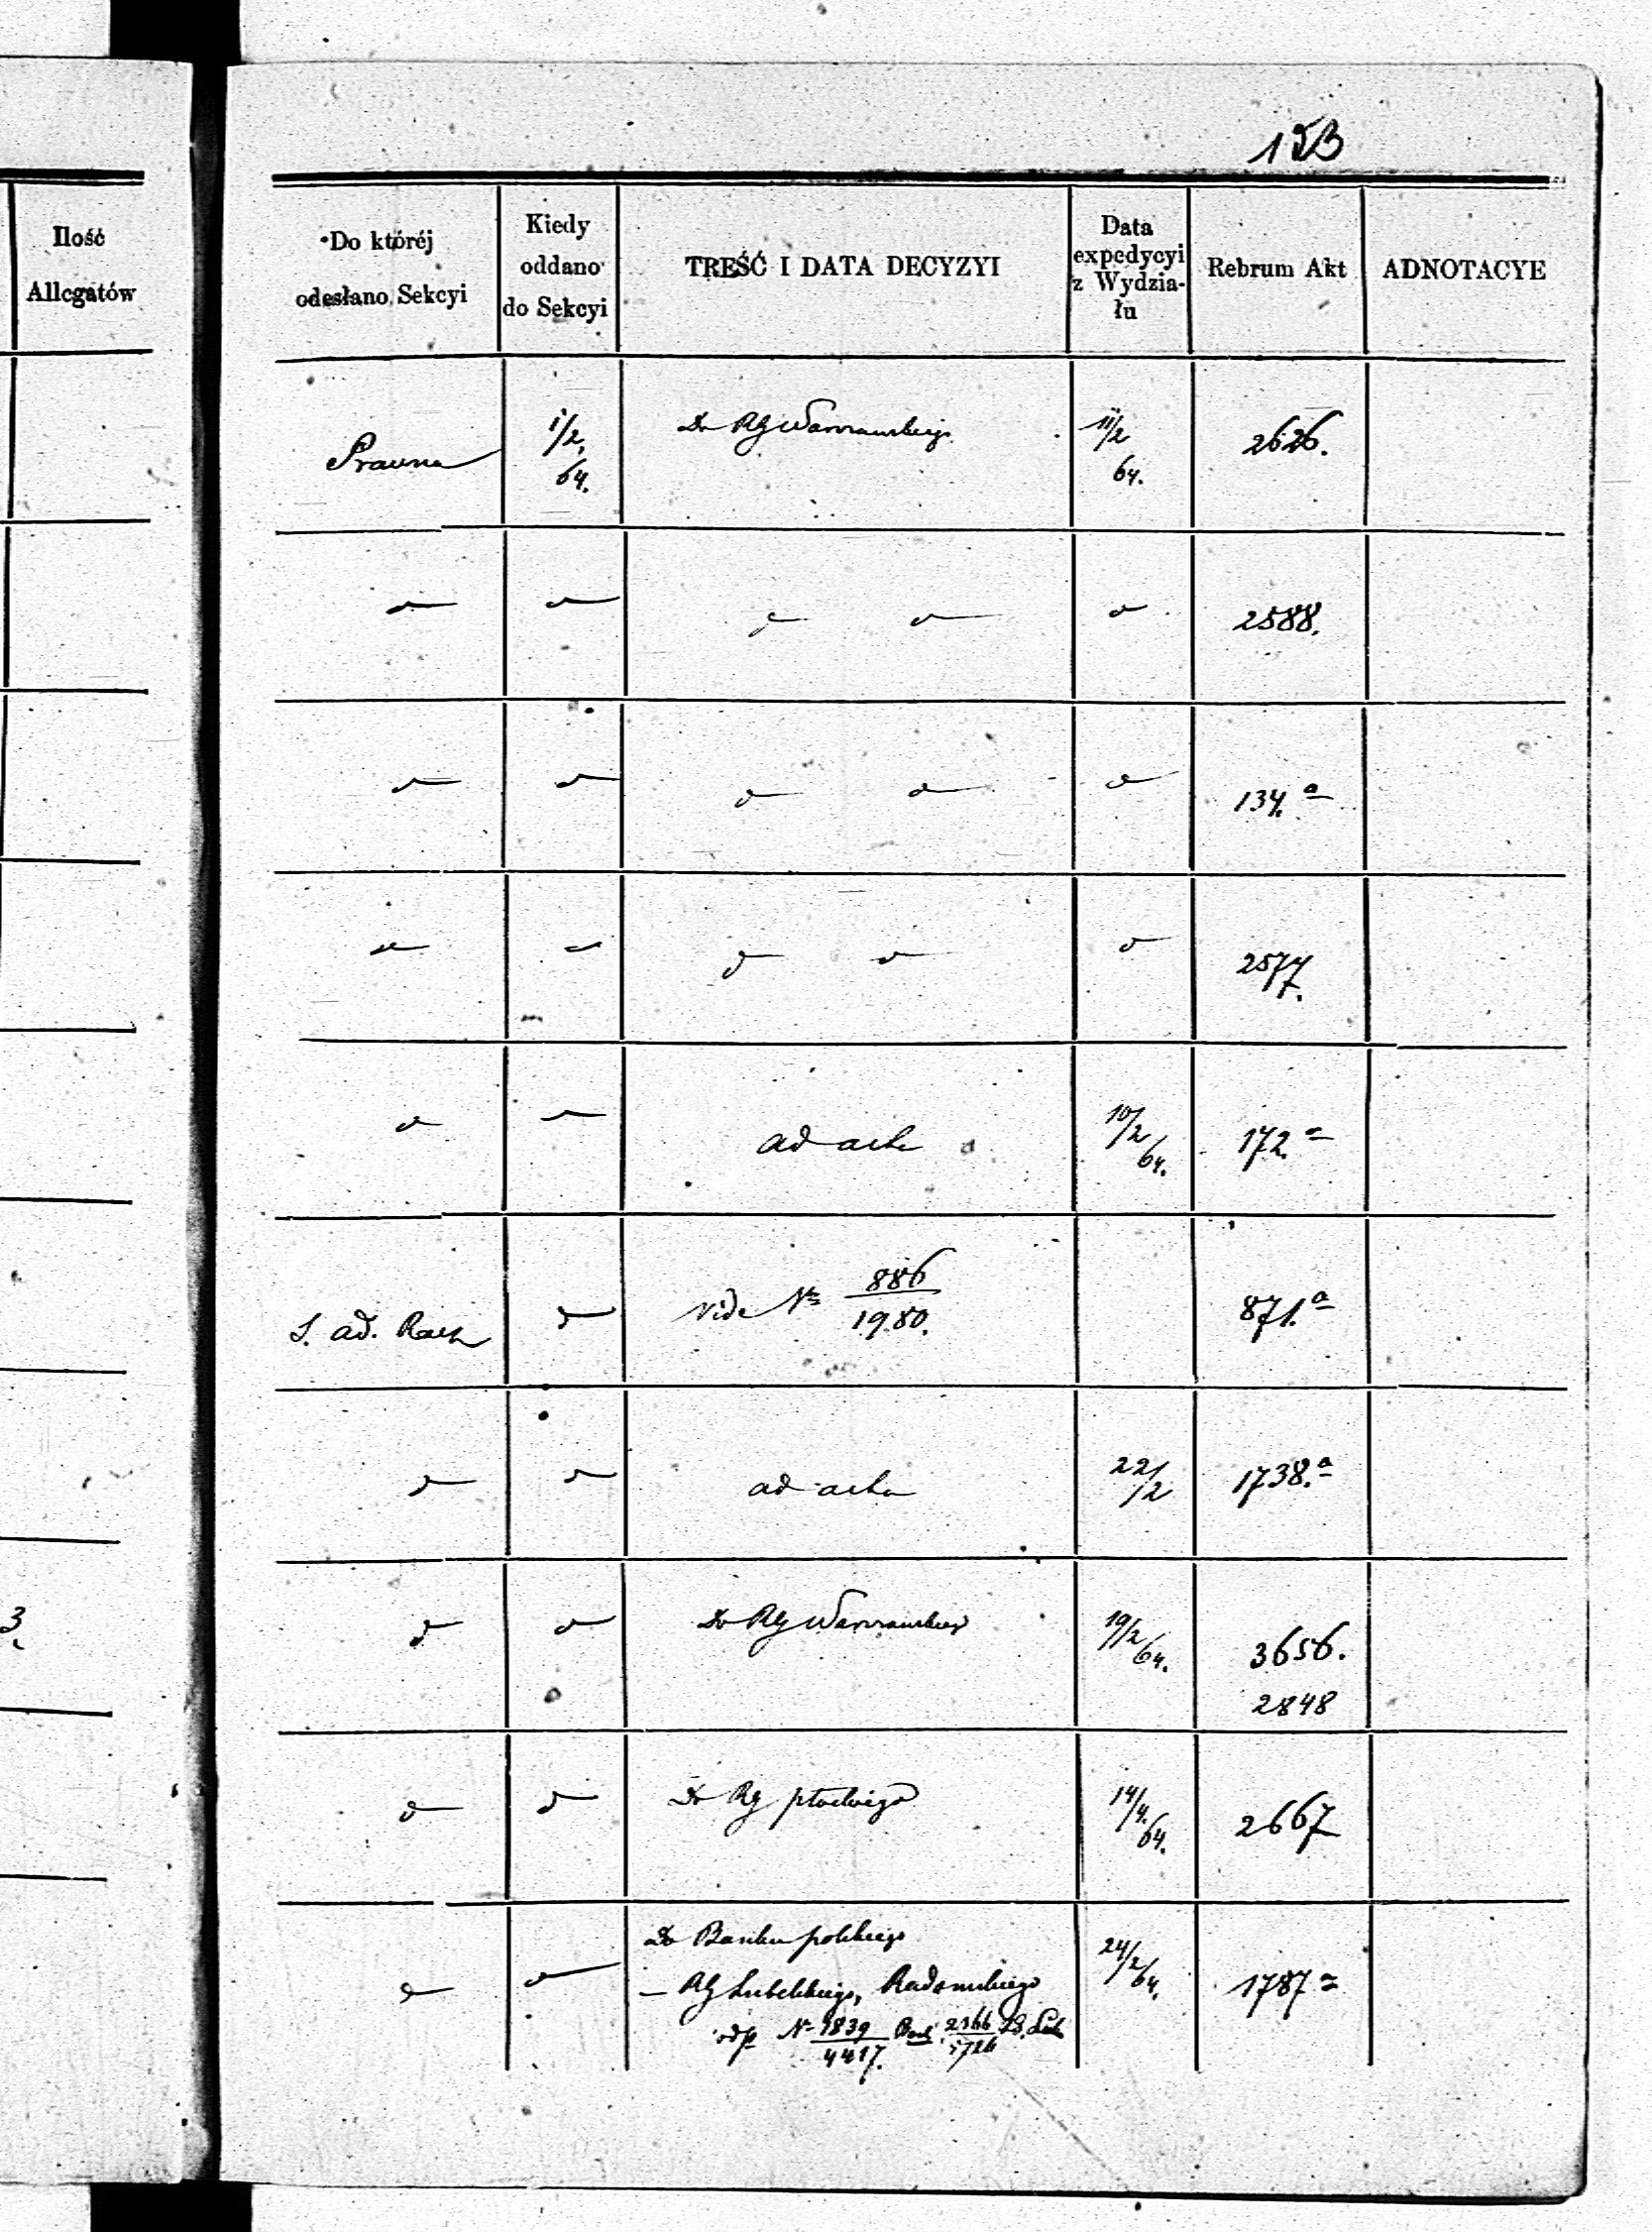 153
Ilość
Allegatów
Do któréj
odesłano Sekcyi
Kiedy
oddano
do Sekcyi
TREŚĆ I DATA DECYZYI
Data
expedycyi
z Wydzia-
łu
Rebrum Akt
ADNOTACYE
Prawna
1/2
64.
Do RG Warszawskiego
11/2
64.
2626.
2588.
134. a
2577.
ad acta
10/2
64.
172. a
S. ad. Rach
Vide № 886
1980.
871. a
ad acta
22/2
1738. a
3
Do RG Warszawskiego
19/2
64.
3656.
2848
Do RG płockiego
14/4.
64.
2667
Do Banku polskiego
— RG Lubelskiego, Radomskiego
24/2
64.
1787 a
odp № 1839 2366
4417.